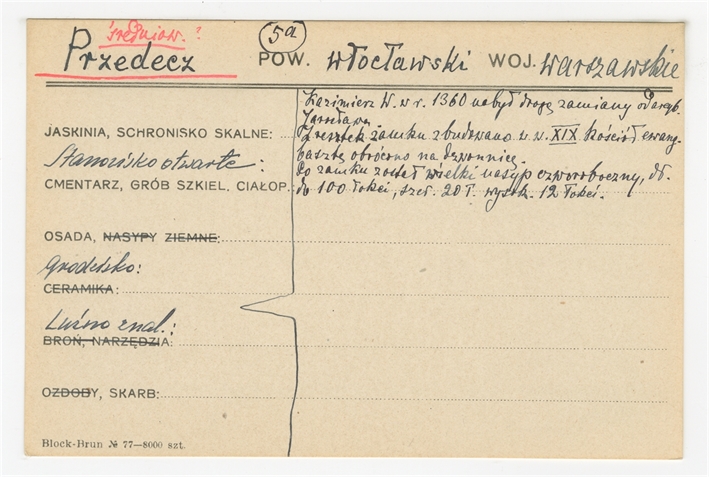 średniow. ?
5a
Przedecz POW. włocławski WOJ. warszawskie
Kazimierz W. w r. 1360 nabył drogą zamiany od arcyb.
Jarosława.
JASKINIA, SCHRONISKO SKALNE:
Z resztek zamku zbudowano w w. XIX kościół ewang.
basztę obrócono na dzwonnicę.
Stanowisko otwarte:
Po zamku został wielki nasyp czworoboczny, dł.
CMENTARZ, GRÓB SZKIEL. CIAŁOP.:
do 100 łokci, szer. 20 ł. wysok. 12 łokci.
OSADA, NASYPY ZIEMNE:
Grodzisko:
CERAMIKA:
Luźno znal.:
BROŃ, NARZĘDZIA:
OZDOBY, SKARB:
Block-Brun № 77—8000 szt.